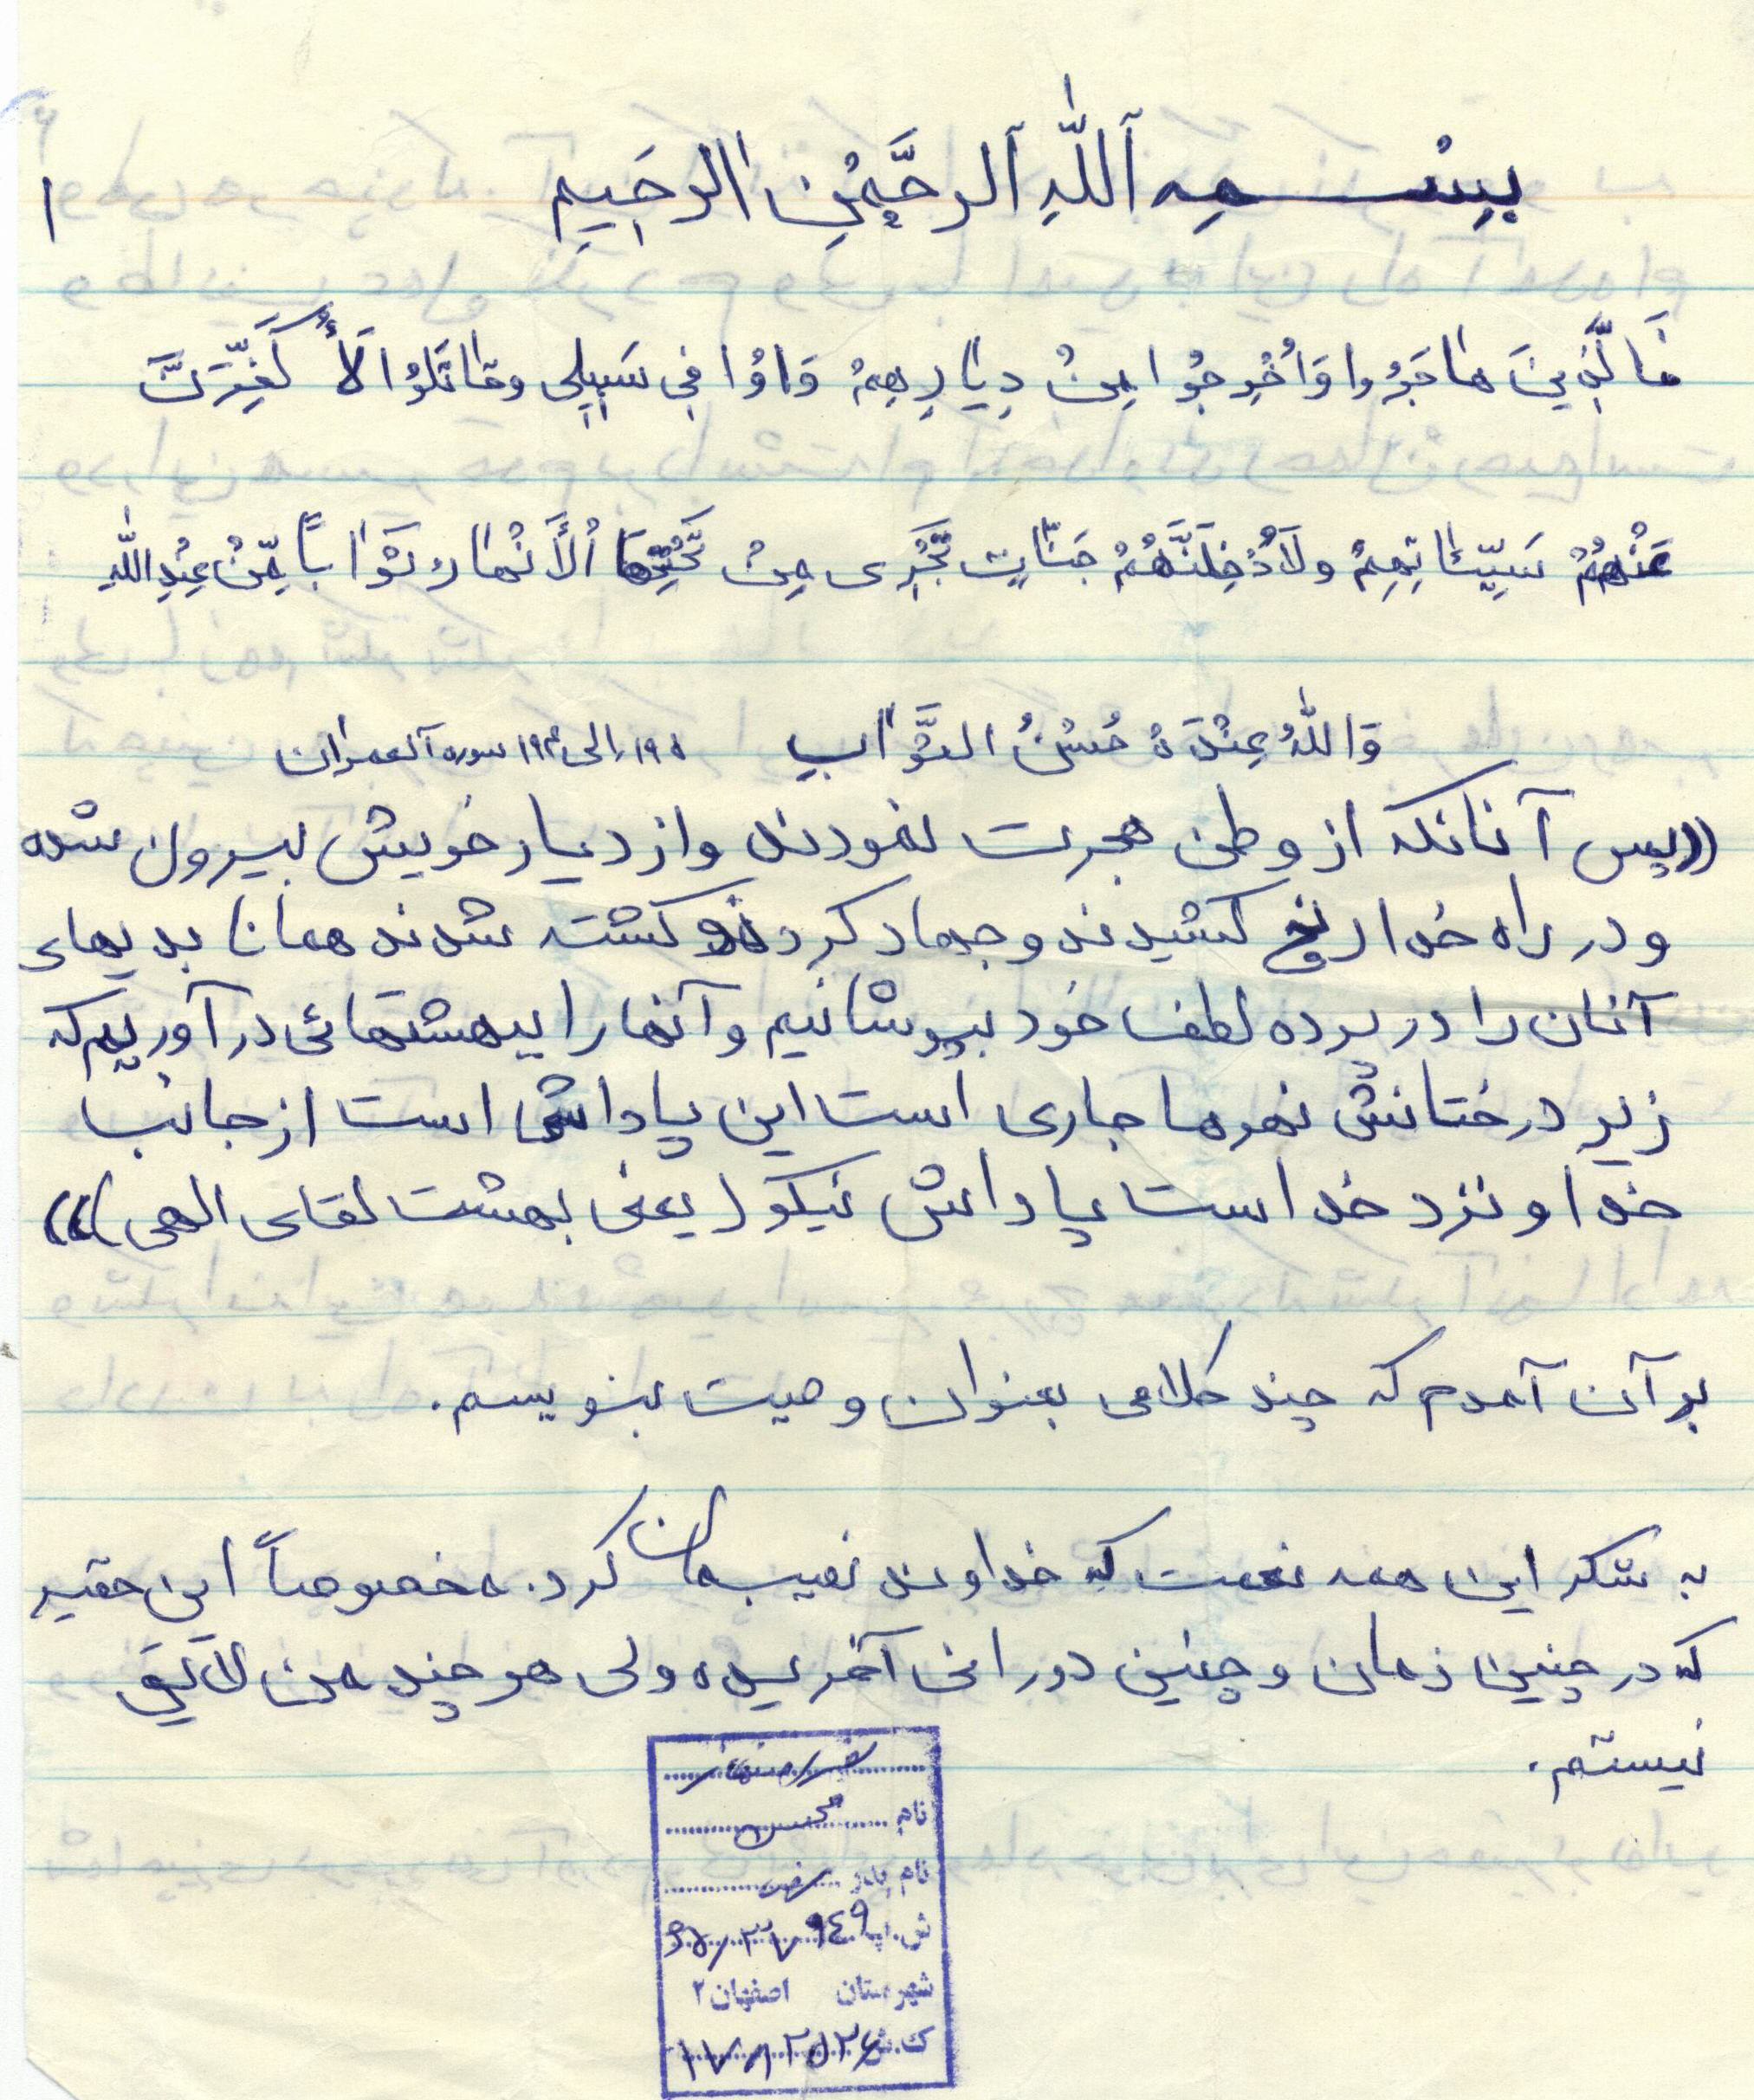 بِسْمِ ٱللّٰهِ ٱلرَّحْمٰنِ الرَحِيمِ
۱
فَالَّذِينَ هٰاجَرُوا وَاُخْرِجُوا مِنْ دِيٰارِهِمْ وَاوُذُا فِى سَبِيلِى وقٰاتَلوُا لَأُكَفِّرَنَّ
عَنْهُمْ سَيِّئٰاتِهِمْ ولَأُدْخِلَنَّهُمْ جَنّٰاتٍ تَجْرِى مِنْ تَحْتِهَا اْلأَنْهٰار ثَوٰاباً مِّنْ عِنْدِاللّٰهِ
وَاللّٰهُ عِنْدَهُ حُسْنُ الثَّوٰابِ ۱۹۵ الی سوره آلعمران
((پس آنانکه از وطن هجرت نمودند و از دیار خویش بیرون شده
و در راه خدا رنج کشیدند و جهاد کردند و کشته شدند همانا بدیهای
آنان را در پرده لطف خود بپوشانیم و آنها را ببهشتهائی در آوریم که
زیر درختانش نهرها جاری است این پاداشی است از جانب
خدا و نزد خداست پاداش نیکو (یعنی بهشت لقای الهی)))
بر آن آمدم که چند کلامی بعنوان وصیت بنویسم.
به شکر این همه نعمت که خداوند نصیبمان کرد. مخصوصاً این حقیر
که در چنین زمان و چنین دورانی آفریده ولی هر چند من لایق
نیستم.
نام محسن
نام پدر
ش.پ
شهرستان اصفهان ۲
ک.ش